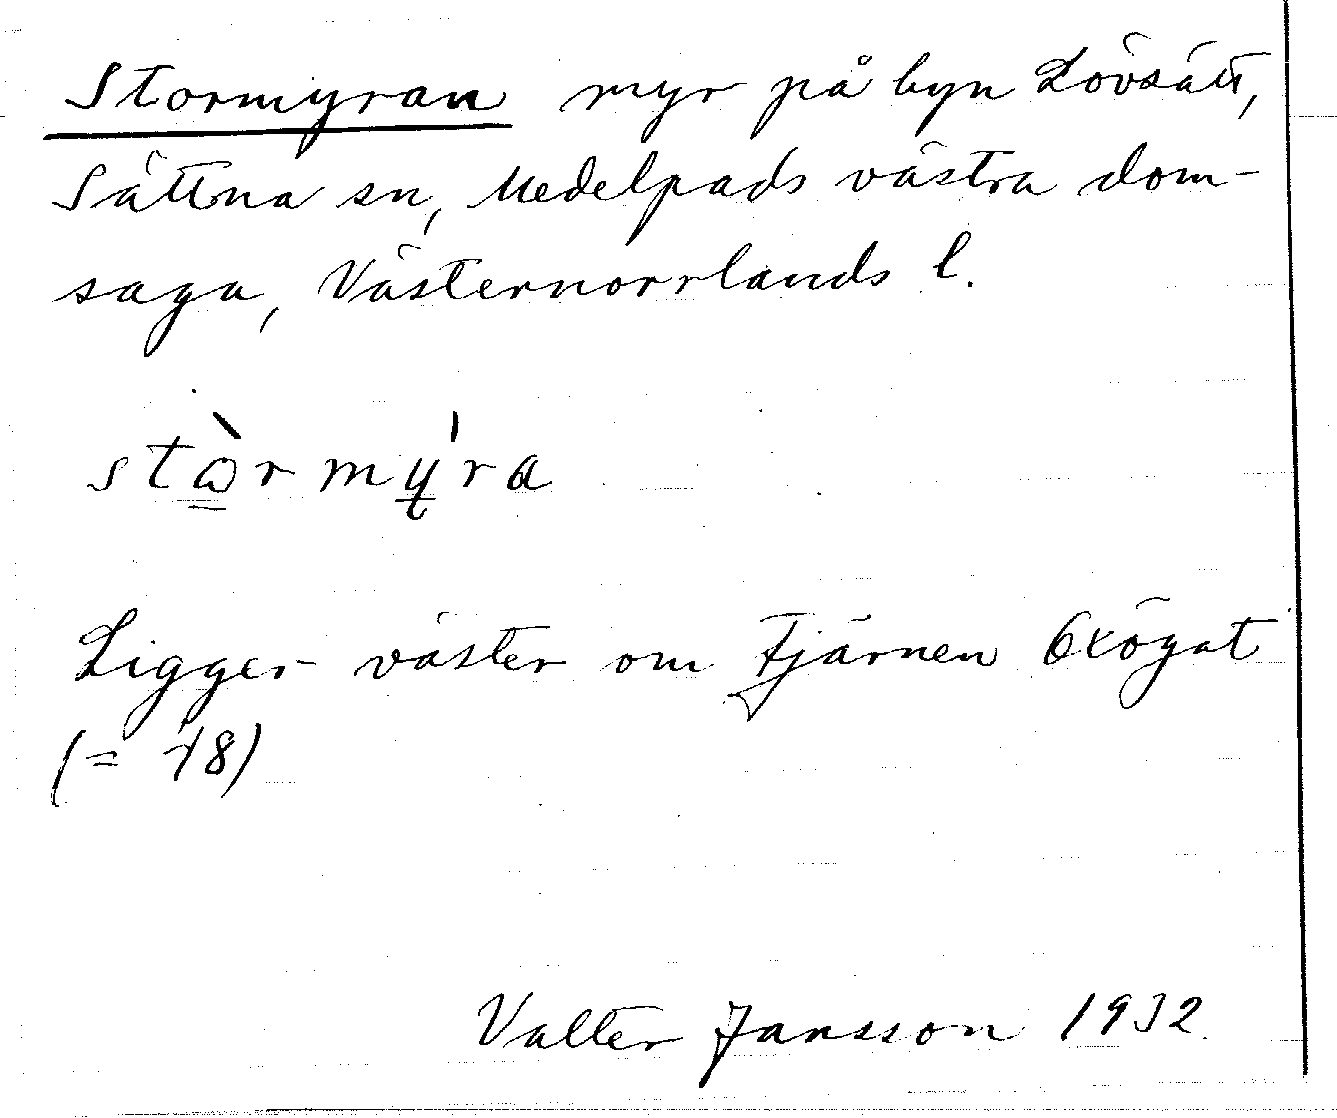 Stormyran myr på byn Lövsått,
Sättna sn, Medelpads västra dom-
saga, Västernorrlands l.
stòrmy̍ra
Ligger väster om tjärnen Oxögat
(= 18)
Valter Jansson 1932